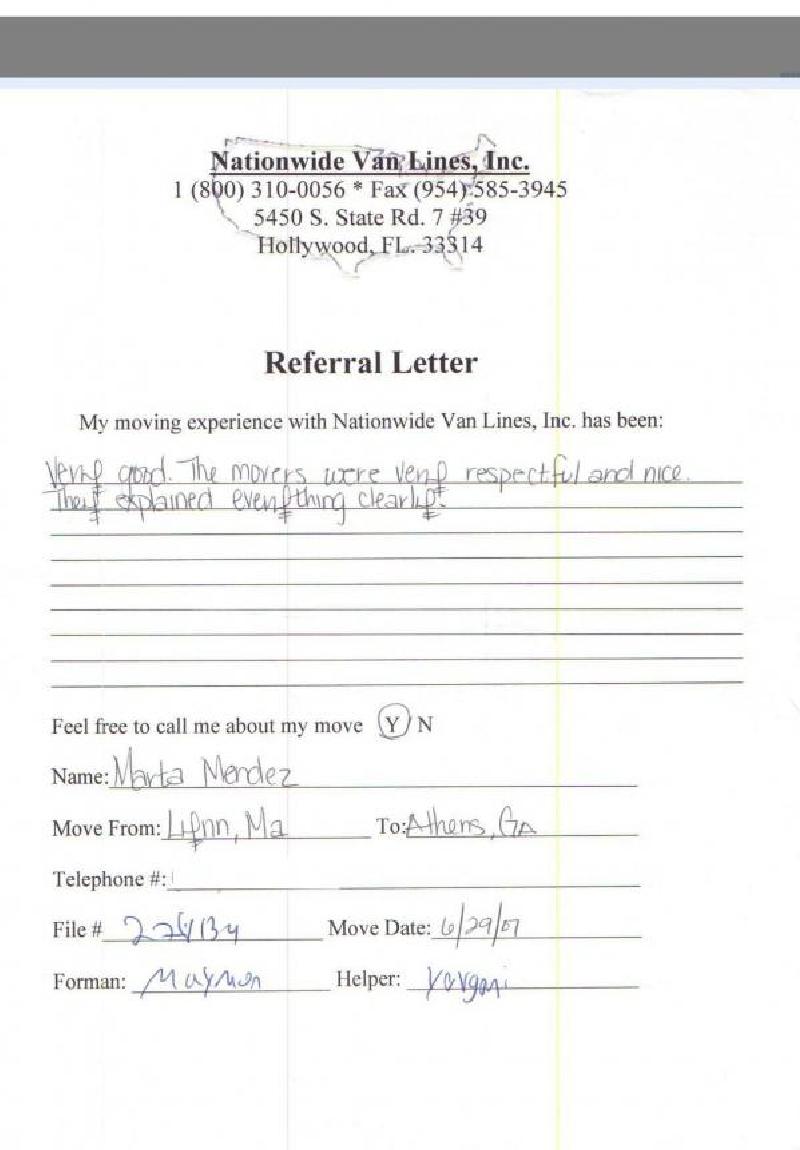 Nationwide Van Lines, Inc.
1 (800) 310-0056 * Fax (954) 585-3945
5450 S. State Rd. 7 #39
Hollywood, FL. 33314
Referral Letter
My moving experience with Nationwide Van Lines, Inc. has been:
Very good. The movers were very respectful and nice.
They explained everything clearly.
Feel free to call me about my move Y N
Name: Marta Mendez
Move From: Lynn, Ma To: Athens, GA
Telephone #:
File # Move Date: 6/29/07
Forman: Maymon Helper: